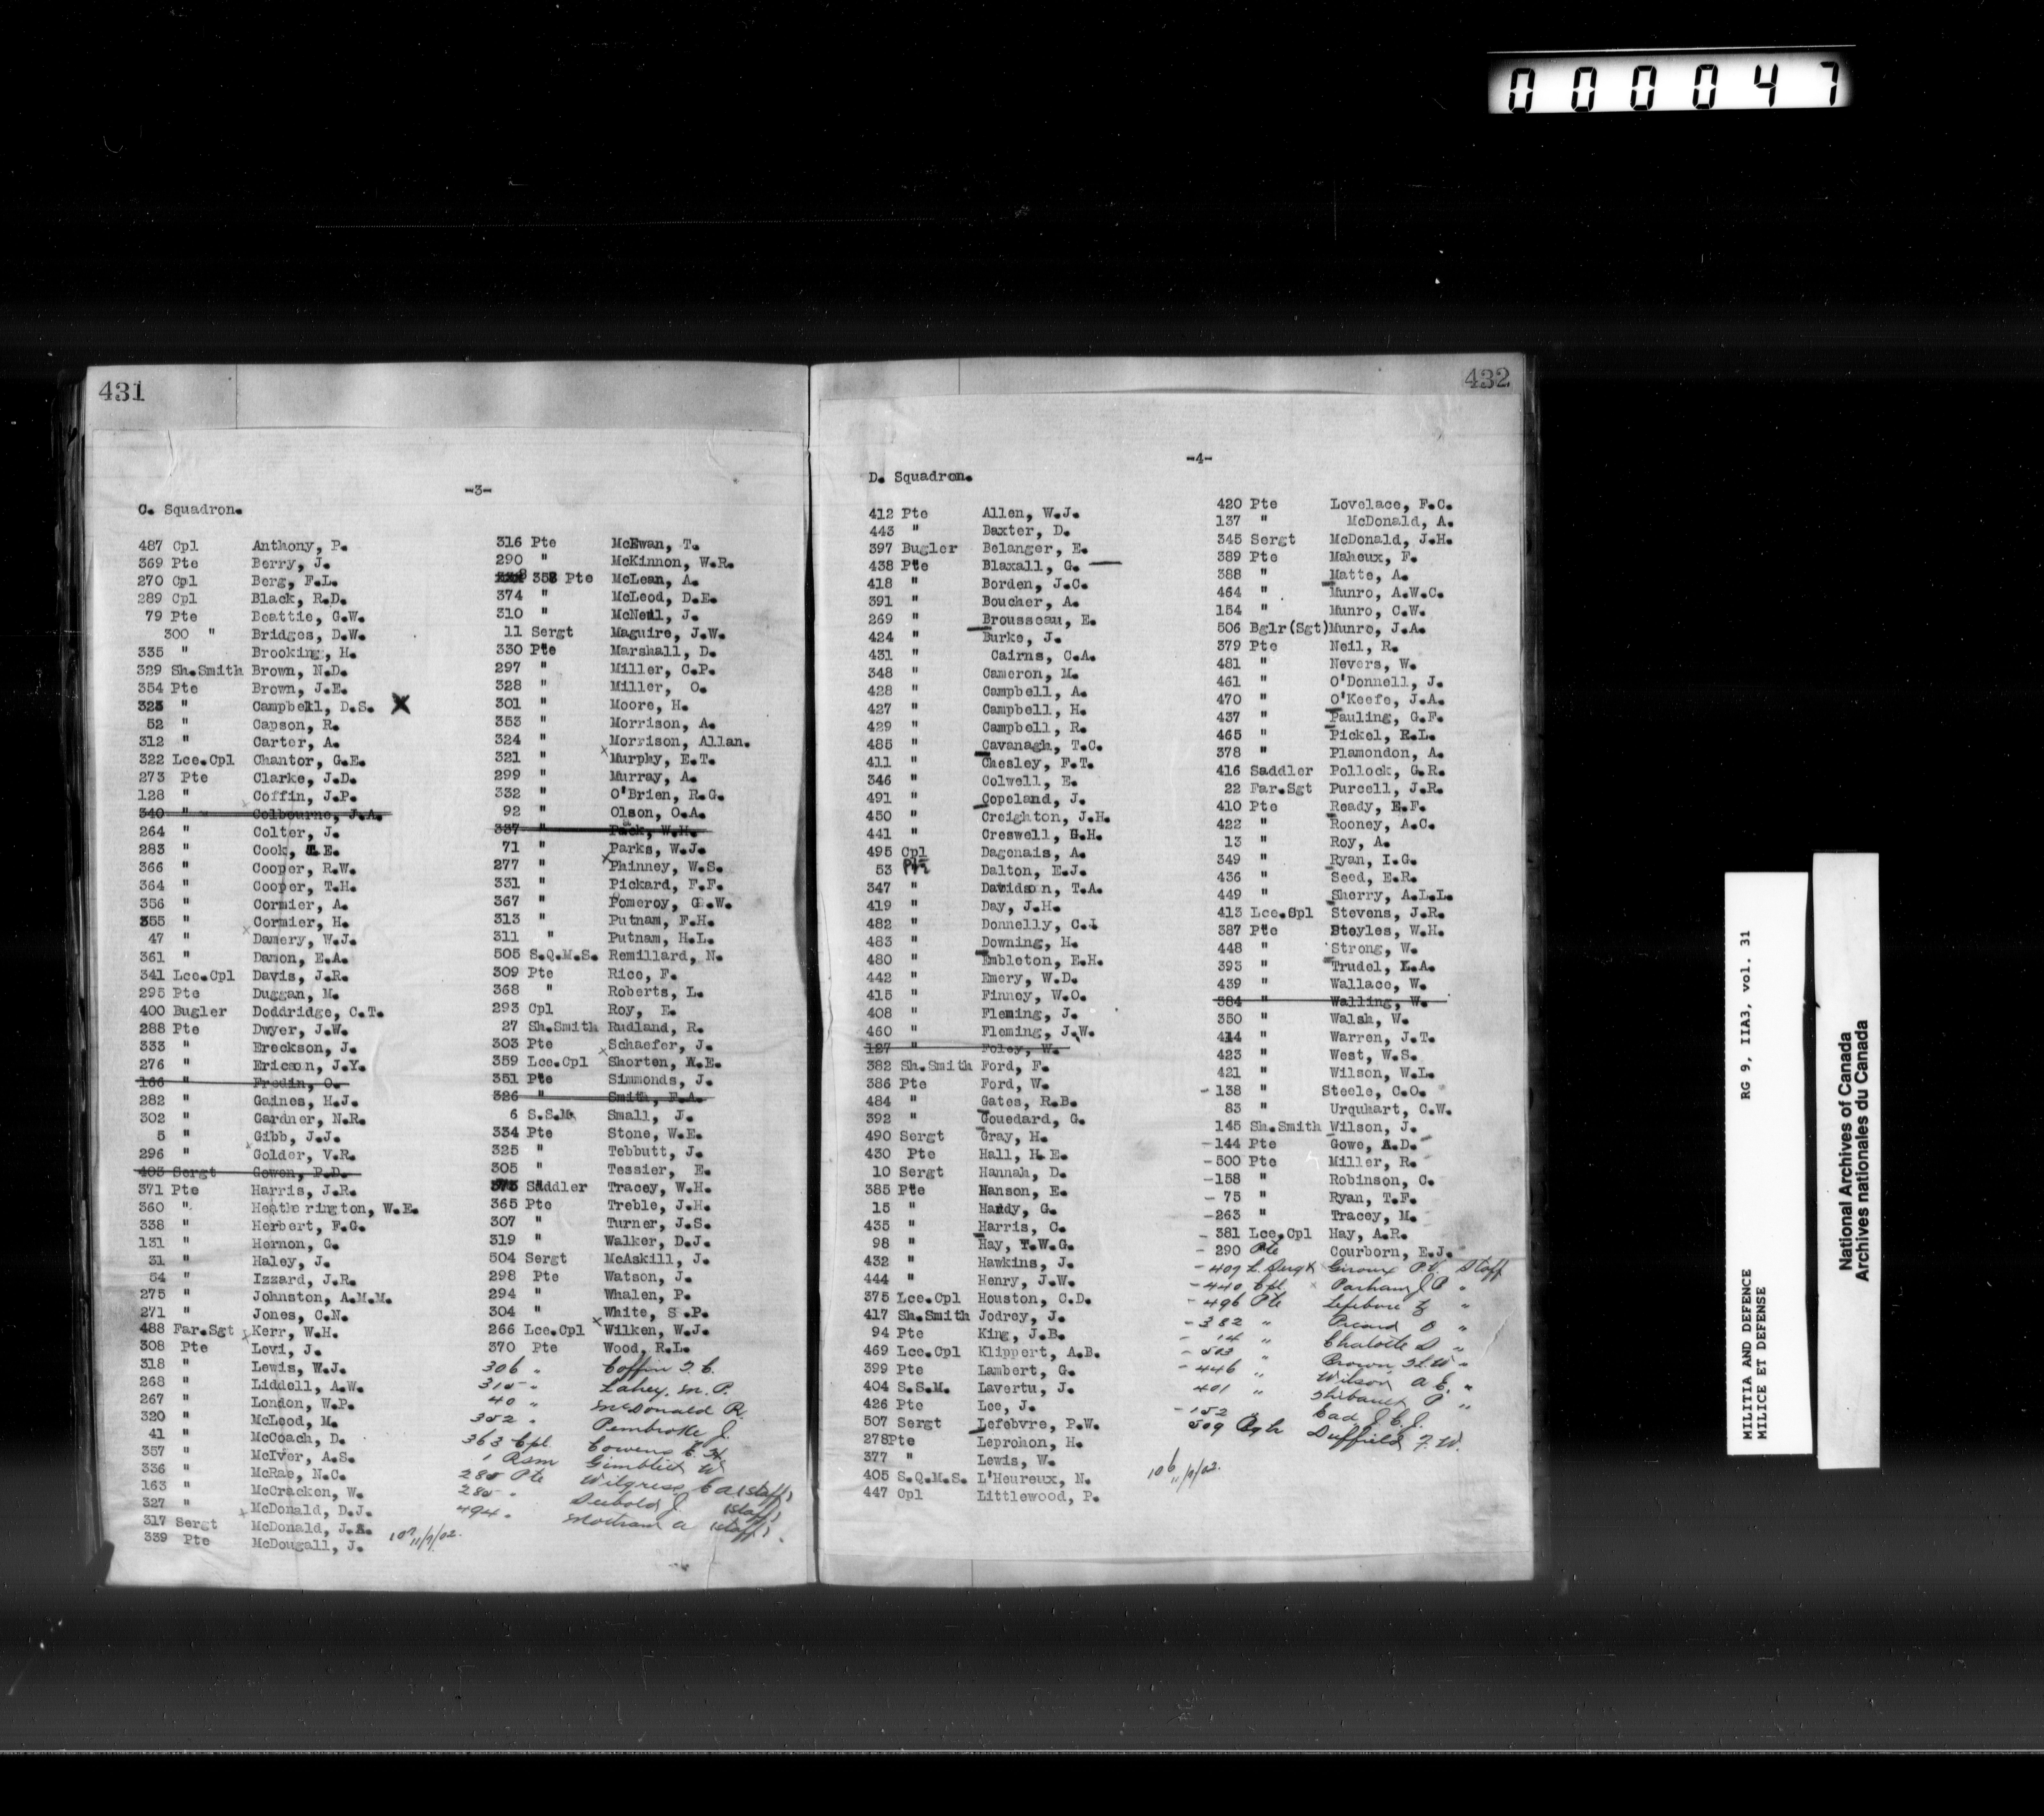 000047
431
-3-
C. Squadron.
487 Cpl Anthony, P.
369 Pte Berry, J.
270 Cpl Berg, F.L.
289 Cpl Black, R.D.
79 Pte Beattie, G.W.
300 " Bridges, D.W.
335 " Brooking, H.
329 Sh.Smith Brown, N.D.
354 Pte Brown, J.E.
323 " Campbell, D.S. X
52 " Capson, R.
312 " Carter, A.
322 Lce.Cpl Chantor, G.E.
273 Pte Clarke, J.D.
128 " Coffin, J.P.
340 " Colbourne, J.A.
264 " Colter, J.
283 " Cook, E.
366 " Cooper, R.W.
364 " Cooper, T.H.
356 " Cormier, A.
355 " Cormier, H.
47 " Damery, W.J.
361 " Damon, E.A.
341 Lce.Cpl Davis, J.R.
295 Pte Duggan, M.
400 Bugler Doddridge, C.T.
288 Pte Dwyer, J.W.
333 " Ereckson, J.
276 " Ericson, J.Y.
166 " Fredin, O.
282 " Gaines, H.J.
302 " Gardner, N.R.
5 " Gibb, J.J.
296 " Golder, V.R.
403 Sergt Gowen, P.D.
371 Pte Harris, J.R.
360 " Heatherington, W.E.
338 " Herbert, F.G.
131 " Hernon, C.
31 " Haley, J.
54 " Izzard, J.R.
275 " Johnston, A.M.M.
271 " Jones, C.N.
488 Far.Sgt Kerr, W.H.
308 Pte Levi, J.
318 " Lewis, W.J.
268 " Liddell, A.W.
267 " London, W.P.
320 " McLeod, M.
41 " McCoach, D.
357 " McIver, A.S.
336 " McRae, N.C.
163 " McCracken, W.
327 " McDonald, D.J.
317 Sergt McDonald, J.A.
339 Pte McDougall, J.
107 11/7/02.
316 Pte McEwan, T.
290 " McKinnon, W.R.
358 Pte McLean, A.
374 " McLeod, D.E.
310 " McNeil, J.
11 Sergt Maguire, J.W.
330 Pte Marshall, D.
297 " Miller, C.P.
328 " Miller, O.
301 " Moore, H.
353 " Morrison, A.
324 " Morrison, Allan.
321 " Murphy, E.T.
299 " Murray, A.
332 " O'Brien, R.G.
92 " Olson, O.A.
337 " Pack, W.H.
71 " Parks, W.J.
277 " Phinney, W.S.
331 " Pickard, F.F.
367 " Pomeroy, G.W.
313 " Putnam, F.H.
311 " Putnam, H.L.
505 S.Q.M.S. Remillard, N.
309 Pte Rice, F.
368 " Roberts, L.
293 Cpl Roy, E.
27 Sh.Smith Rudland, R.
303 Pte Schaefer, J.
359 Lce.Cpl Shorten, A.E.
351 Pte Simmonds, J.
326 " Smith, F.A.
6 S.S.M. Small, J.
334 Pte Stone, W.E.
325 " Tebbutt, J.
305 " Tessier, E.
373 Saddler Tracey, W.H.
365 Pte Treble, J.H.
307 " Turner, J.S.
319 " Walker, D.J.
504 Sergt McAskill, J.
298 Pte Watson, J.
294 " Whalen, P.
304 " White, S.P.
266 Lce.Cpl Wilken, W.J.
370 Pte Wood, R.L.
306 " Coffin
315 " Lahey, M. P.
40 " McDonald R.
352 " Pembroke J.
363 Cpl Cowens
1 RSM Gimblett W.
285 Pte Wilgress (Staff)
285 " Seebold J (Staff)
494 " Mottram A (Staff)
432
-4-
D. Squadron.
412 Pte Allen, W.J.
443 " Baxter, D.
397 Bugler Belanger, E.
438 Pte Blaxall, G.
418 " Borden, J.C.
391 " Boucher, A.
269 " Brousseau, E.
424 " Burke, J.
431 " Cairns, C.A.
348 " Cameron, M.
428 " Campbell, A.
427 " Campbell, H.
429 " Campbell, R.
485 " Cavanagh, T.C.
411 " Chesley, F.T.
346 " Colwell, E.
491 " Copeland, J.
450 " Creighton, J.H.
441 " Creswell, G.H.
495 Cpl Dagenais, A.
53 Pte Dalton, E.J.
347 " Davidson, T.A.
419 " Day, J.H.
482 " Donnelly, C.L
483 " Downing, H.
480 " Embleton, E.H.
442 " Emery, W.D.
415 " Finney, W.O.
408 " Fleming, J.
460 " Fleming, J.W.
127 " Foley, W.
382 Sh.Smith Ford, F.
386 Pte Ford, W.
484 " Gates, R.B.
392 " Gouedard, G.
490 Sergt Gray, H.
430 Pte Hall, H.E.
10 Sergt Hannah, D.
385 Pte Hanson, E.
15 " Hardy, G.
435 " Harris, C.
98 " Hay, T.W.G.
432 " Hawkins, J.
444 " Henry, J.W.
375 Lce.Cpl Houston, C.D.
417 Sh.Smith Jodrey, J.
94 Pte King, J.B.
469 Lce.Cpl Klippert, A.B.
399 Pte Lambert, G.
404 S.S.M. Lavertu, J.
426 Pte Lee, J.
507 Sergt Lefebvre, P.W.
278Pte Leprohon, H.
377 " Lewis, W.
405 S.Q.M.S. L'Heureux, N.
447 Cpl Littlewood, P.
106 11/7/02.
420 Pte Lovelace, F.C.
137 " McDonald, A.
345 Sergt McDonald, J.H.
389 Pte Maheux, F.
388 " Matte, A.
464 " Munro, A.W.C.
154 " Munro, C.W.
506 Bglr(Sgt)Munro, J.A.
379 Pte Neil, R.
481 " Nevers, W.
461 " O'Donnell, J.
470 " O'Keefe, J.A.
437 " Pauling, G.F.
465 " Pickel, R.L.
378 " Plamondon, A.
416 Saddler Pollock, G.R.
22 Far.Sgt Purcell, J.R.
410 Pte Ready, E.F.
422 " Rooney, A.C.
13 " Roy, A.
349 " Ryan, I.G.
436 " Seed, E.R.
449 " Sherry, A.L.L.
413 Lce.Cpl Stevens, J.R.
387 Pte Stoyles, W.H.
448 " Strong, W.
393 " Trudel, L.A.
439 " Wallace, W.
384 " Walling, W.
350 " Walsh, W.
414 " Warren, J.T.
423 " West, W.S.
421 " Wilson, W.L.
-138 " Steele, C.O.
83 " Urquhart, C.W.
145 Sh.Smith Wilson, J.
-144 Pte Gowe, A.D.
-500 Pte Miller, R.
-158 " Robinson, C.
-75 " Ryan, T.F.
-263 " Tracey, M.
-381 Lce.Cpl Hay, A.R.
-290 Pte Courborn, E.J.
-409 L. Sergt Giroux P.V. Staff
-440 Cpl Parham J P "
-496 Pte Lefebvre "
-382 " Picard O "
-14 " Chalotte "
-503 " Brown "
-446 " Wilson A E. "
401 " Thibault P "
-152 " Cad J.C.J.
509 Bglr Duffield F. W.
MILITIA AND DEFENCE RG 9, IIA3, vol. 31
MILICE ET DEFENSE
National Archives of Canada
Archives nationales du Canada